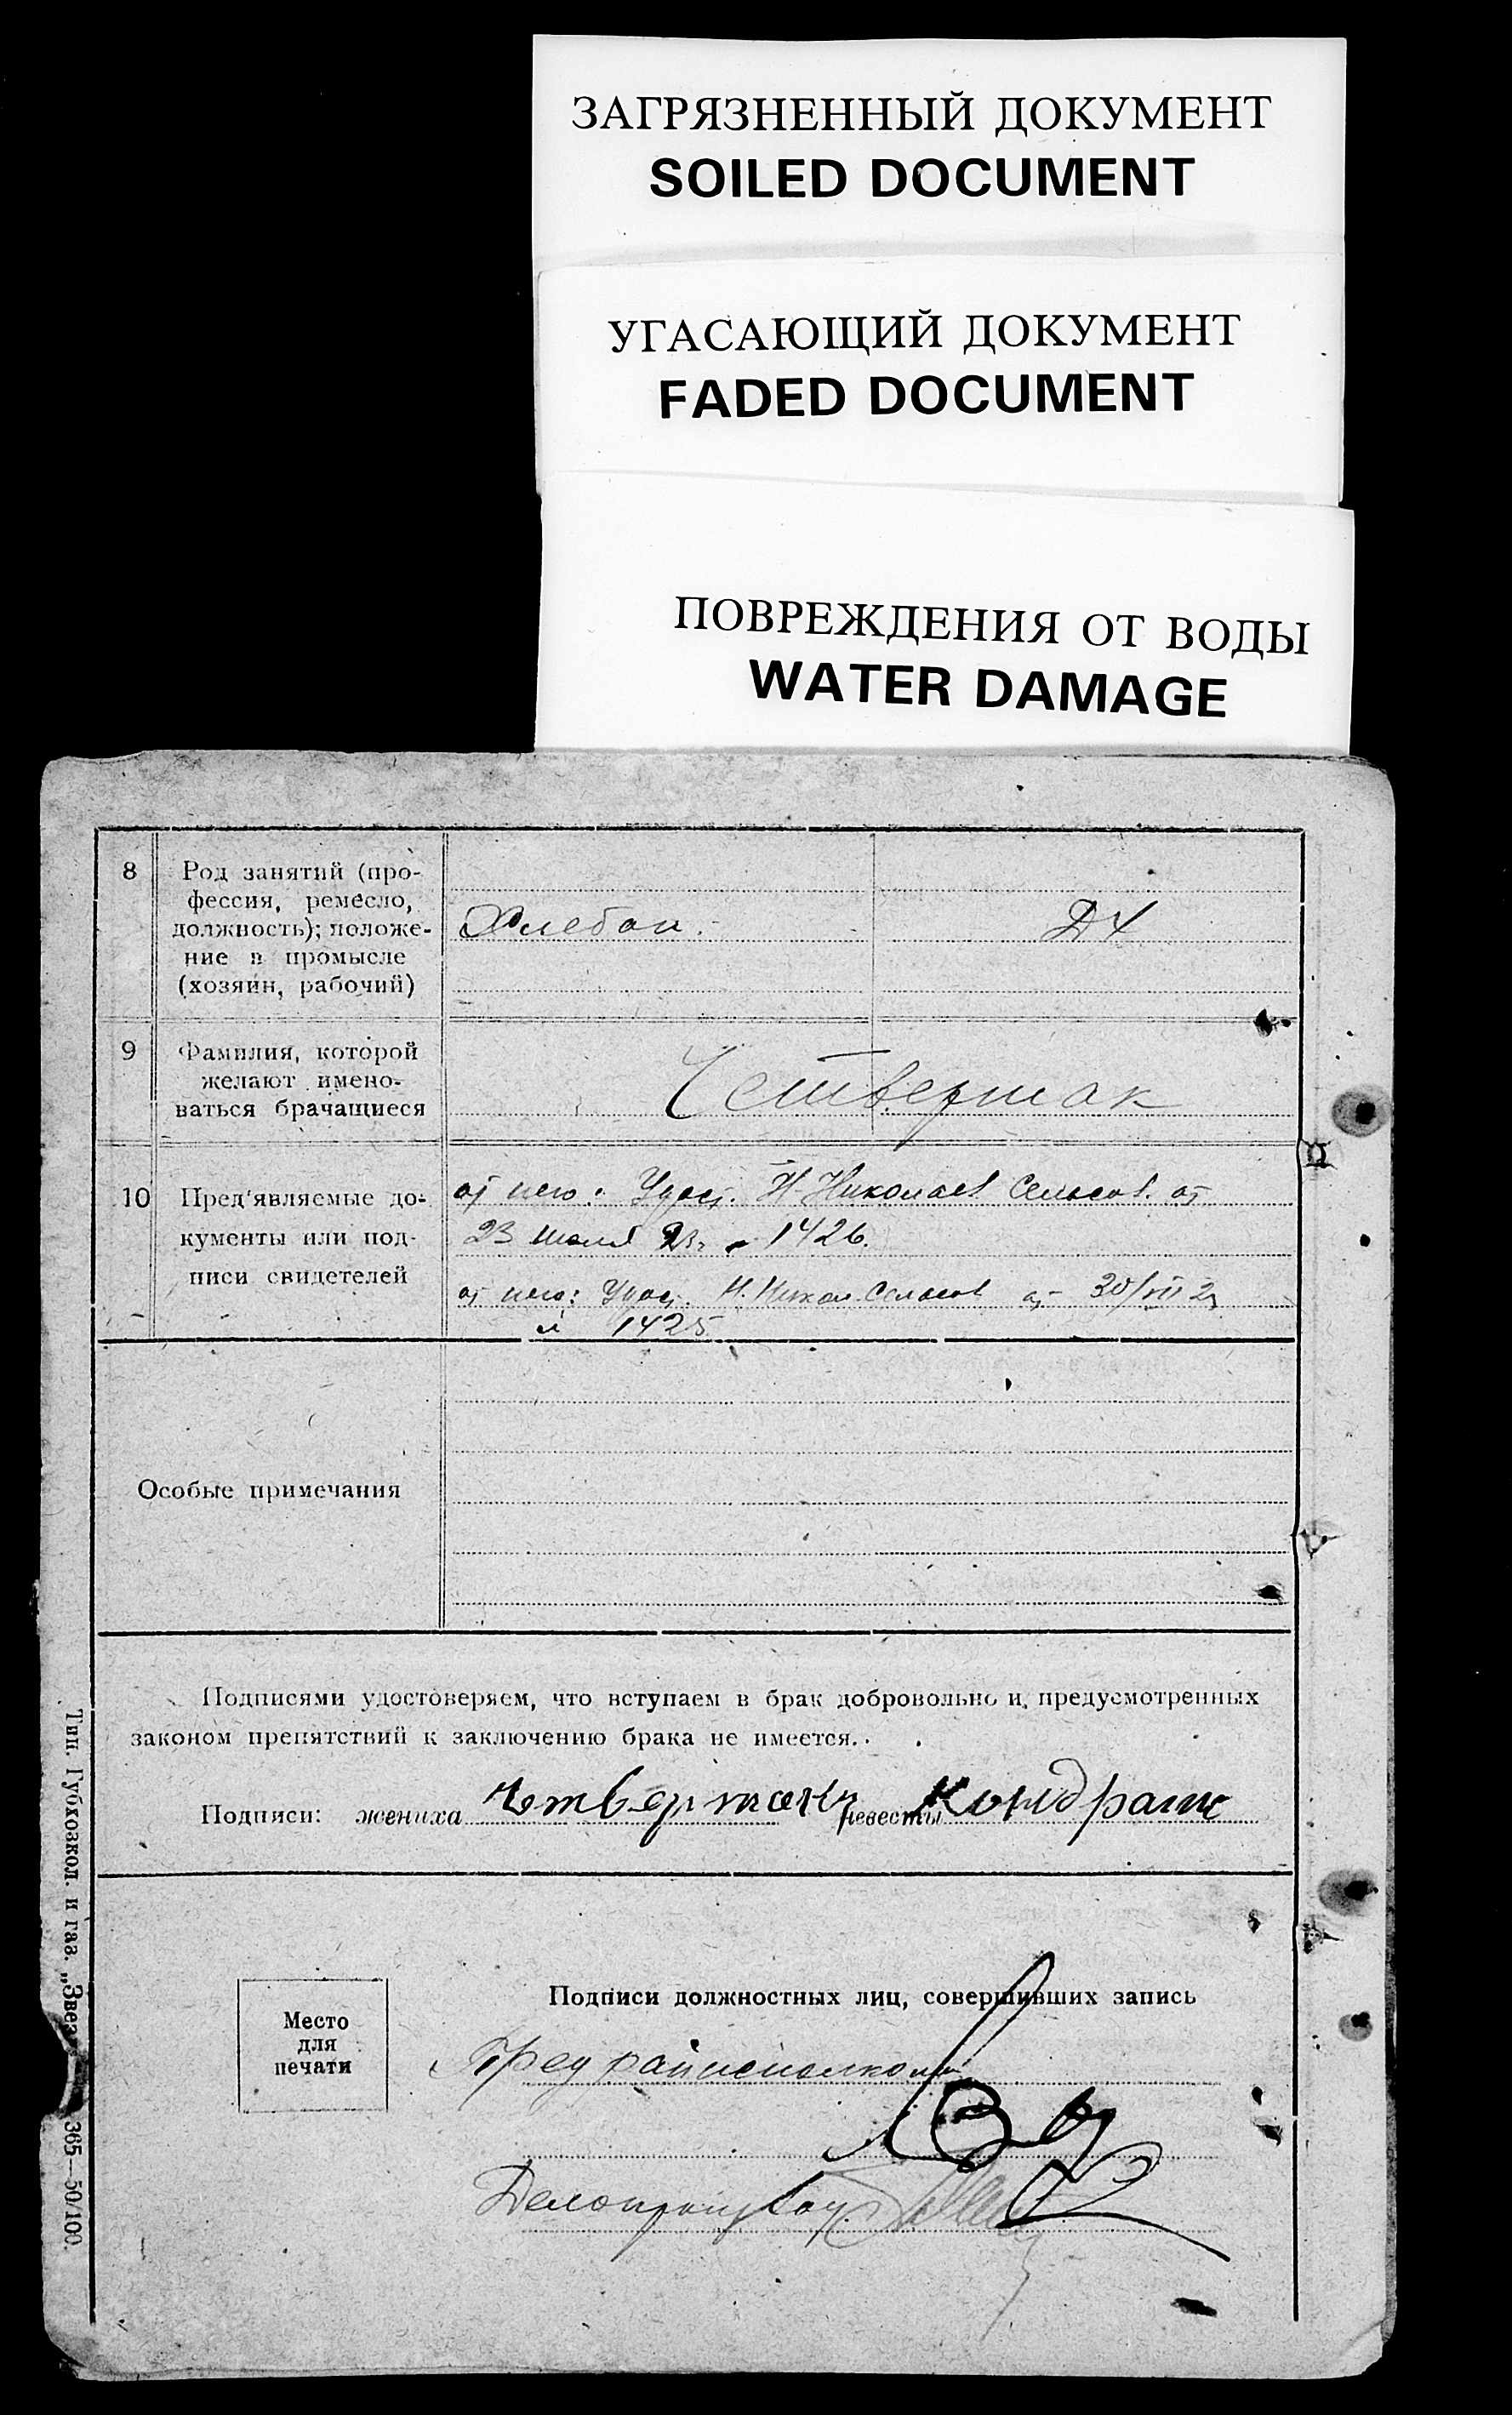 ЗАГРЯЗНЕННЫЙ ДОКУМЕНТ
SOILED DOCUMENT
УГАСАЮЩИЙ ДОКУМЕНТ
FADED DOCUMENT
ПОВРЕЖДЕНИЯ ОТ ВОДЫ
WATER DAMAGE
8
Род занятий (про-
фессия, ремесло,
должность); положе-
ние в промысле
(хозяин, рабочий)
Хлебоп.
ДХ
9
Фамилия, которой
желают имено-
ваться брачащиеся
Четвертак
10
Пред'являемые до-
кументы или под-
писи свидетелей
от него: Удост. Н-Николаев Сельсов. от
23 июля 1426.
от нею: Удост. Н. Никол. Сельсов от 30/VII
1425
Особые примечания
Подписями удостоверяем, что вступаем в брак добровольно и, предусмотренных
законом препятствий к заключению брака не имеется.
Подписи: жениха Четвертак невесты Кондрат
Место
для
печати
Подписи должностных лиц, совершивших запись
Пред райисполкома
Делопроизвод.
Тип. Губхозкол. и газ. „Звез 365—50/100.